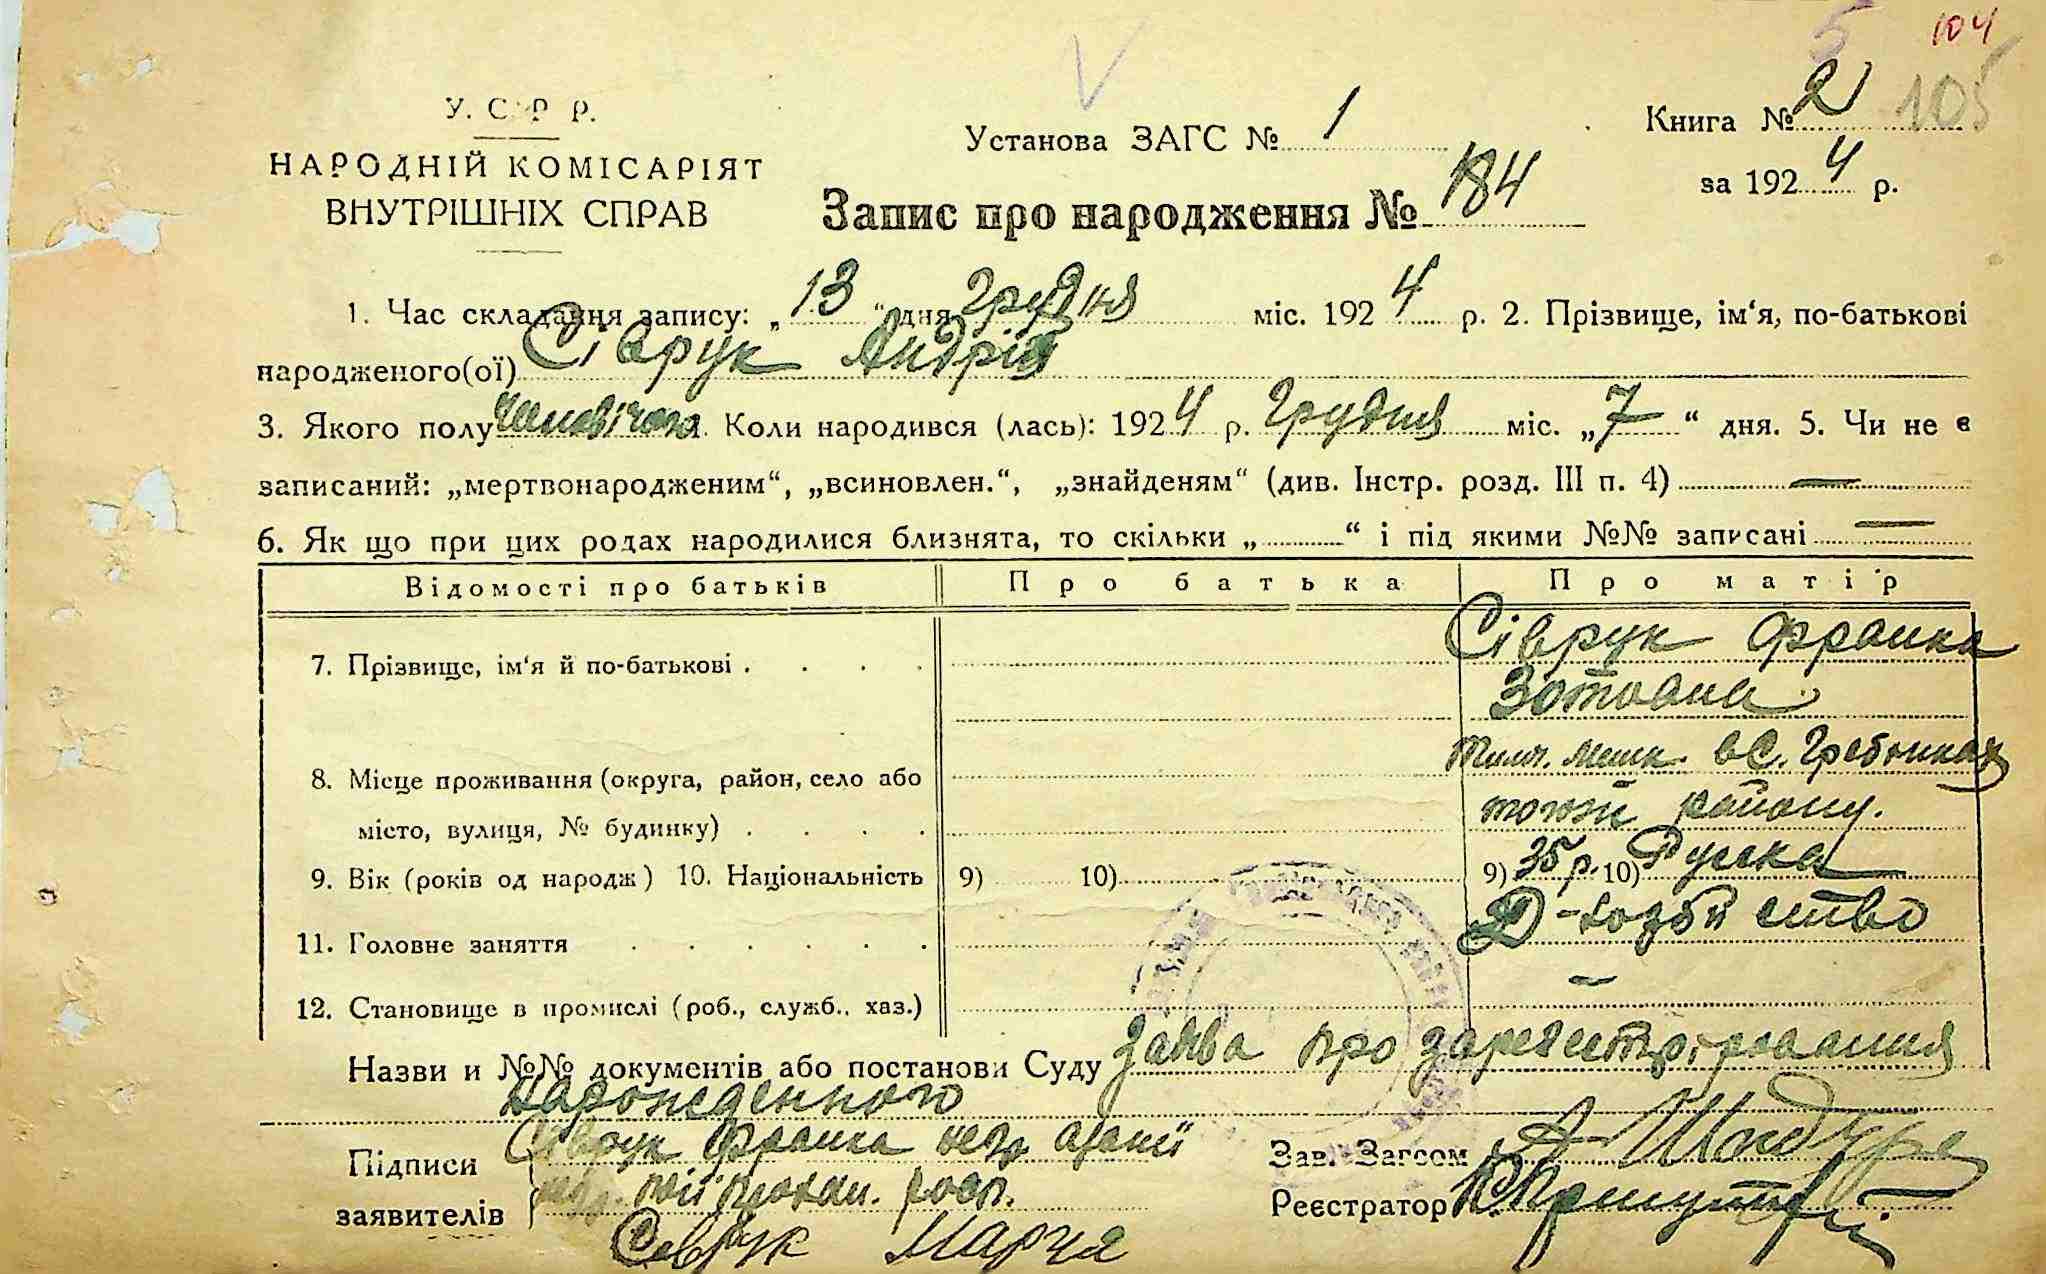 5 104
У. С. Р. Р.
НАРОДНІЙ КОМІСАРІЯТ
ВНУТРІШНІХ СПРАВ
Установа ЗАГС № 1
Книга № 2 105
за 1924 р.
Запис про народження № 184
1. Час складання запису: „13“ дня Грудня міс. 1924 р. 2. Прізвище, ім‘я, по-батькові
народженого(ої) Сіврук Андрій
3. Якого полу Чоловічого. Коли народився (лась): 1924 р. Грудня міс. „7“ дня. 5. Чи не є
записаний: „мертвонародженим“, „всиновлен.“, „знайденям“ (див. Інстр. розд. III п. 4) —
6. Як що при цих родах народилися близнята, то скільки „ “ і під якими №№ записані —
Відомості про батьків Про батька Про матір
7. Прізвище, ім‘я й по-батькові . . . . Сіврук Франка
Зотовна
8. Місце проживання (округа, район, село або Тимч. мешк. в С. Гребінках
місто, вулиця, № будинку) . . . . тогож району.
9. Вік (років од народж) 10. Національність 9) 10) 9) 35 р. 10) Руська
11. Головне заняття . . . . . . Д-хозяйство
12. Становище в промислі (роб., служб., хаз.) —
Назви и №№ документів або постанови Суду Заява про зарегистрірования
нарожденного
Підписи Сіврук Франка
заявителів
Севрук Марчя
Зав. Загсом А
Реєстратор